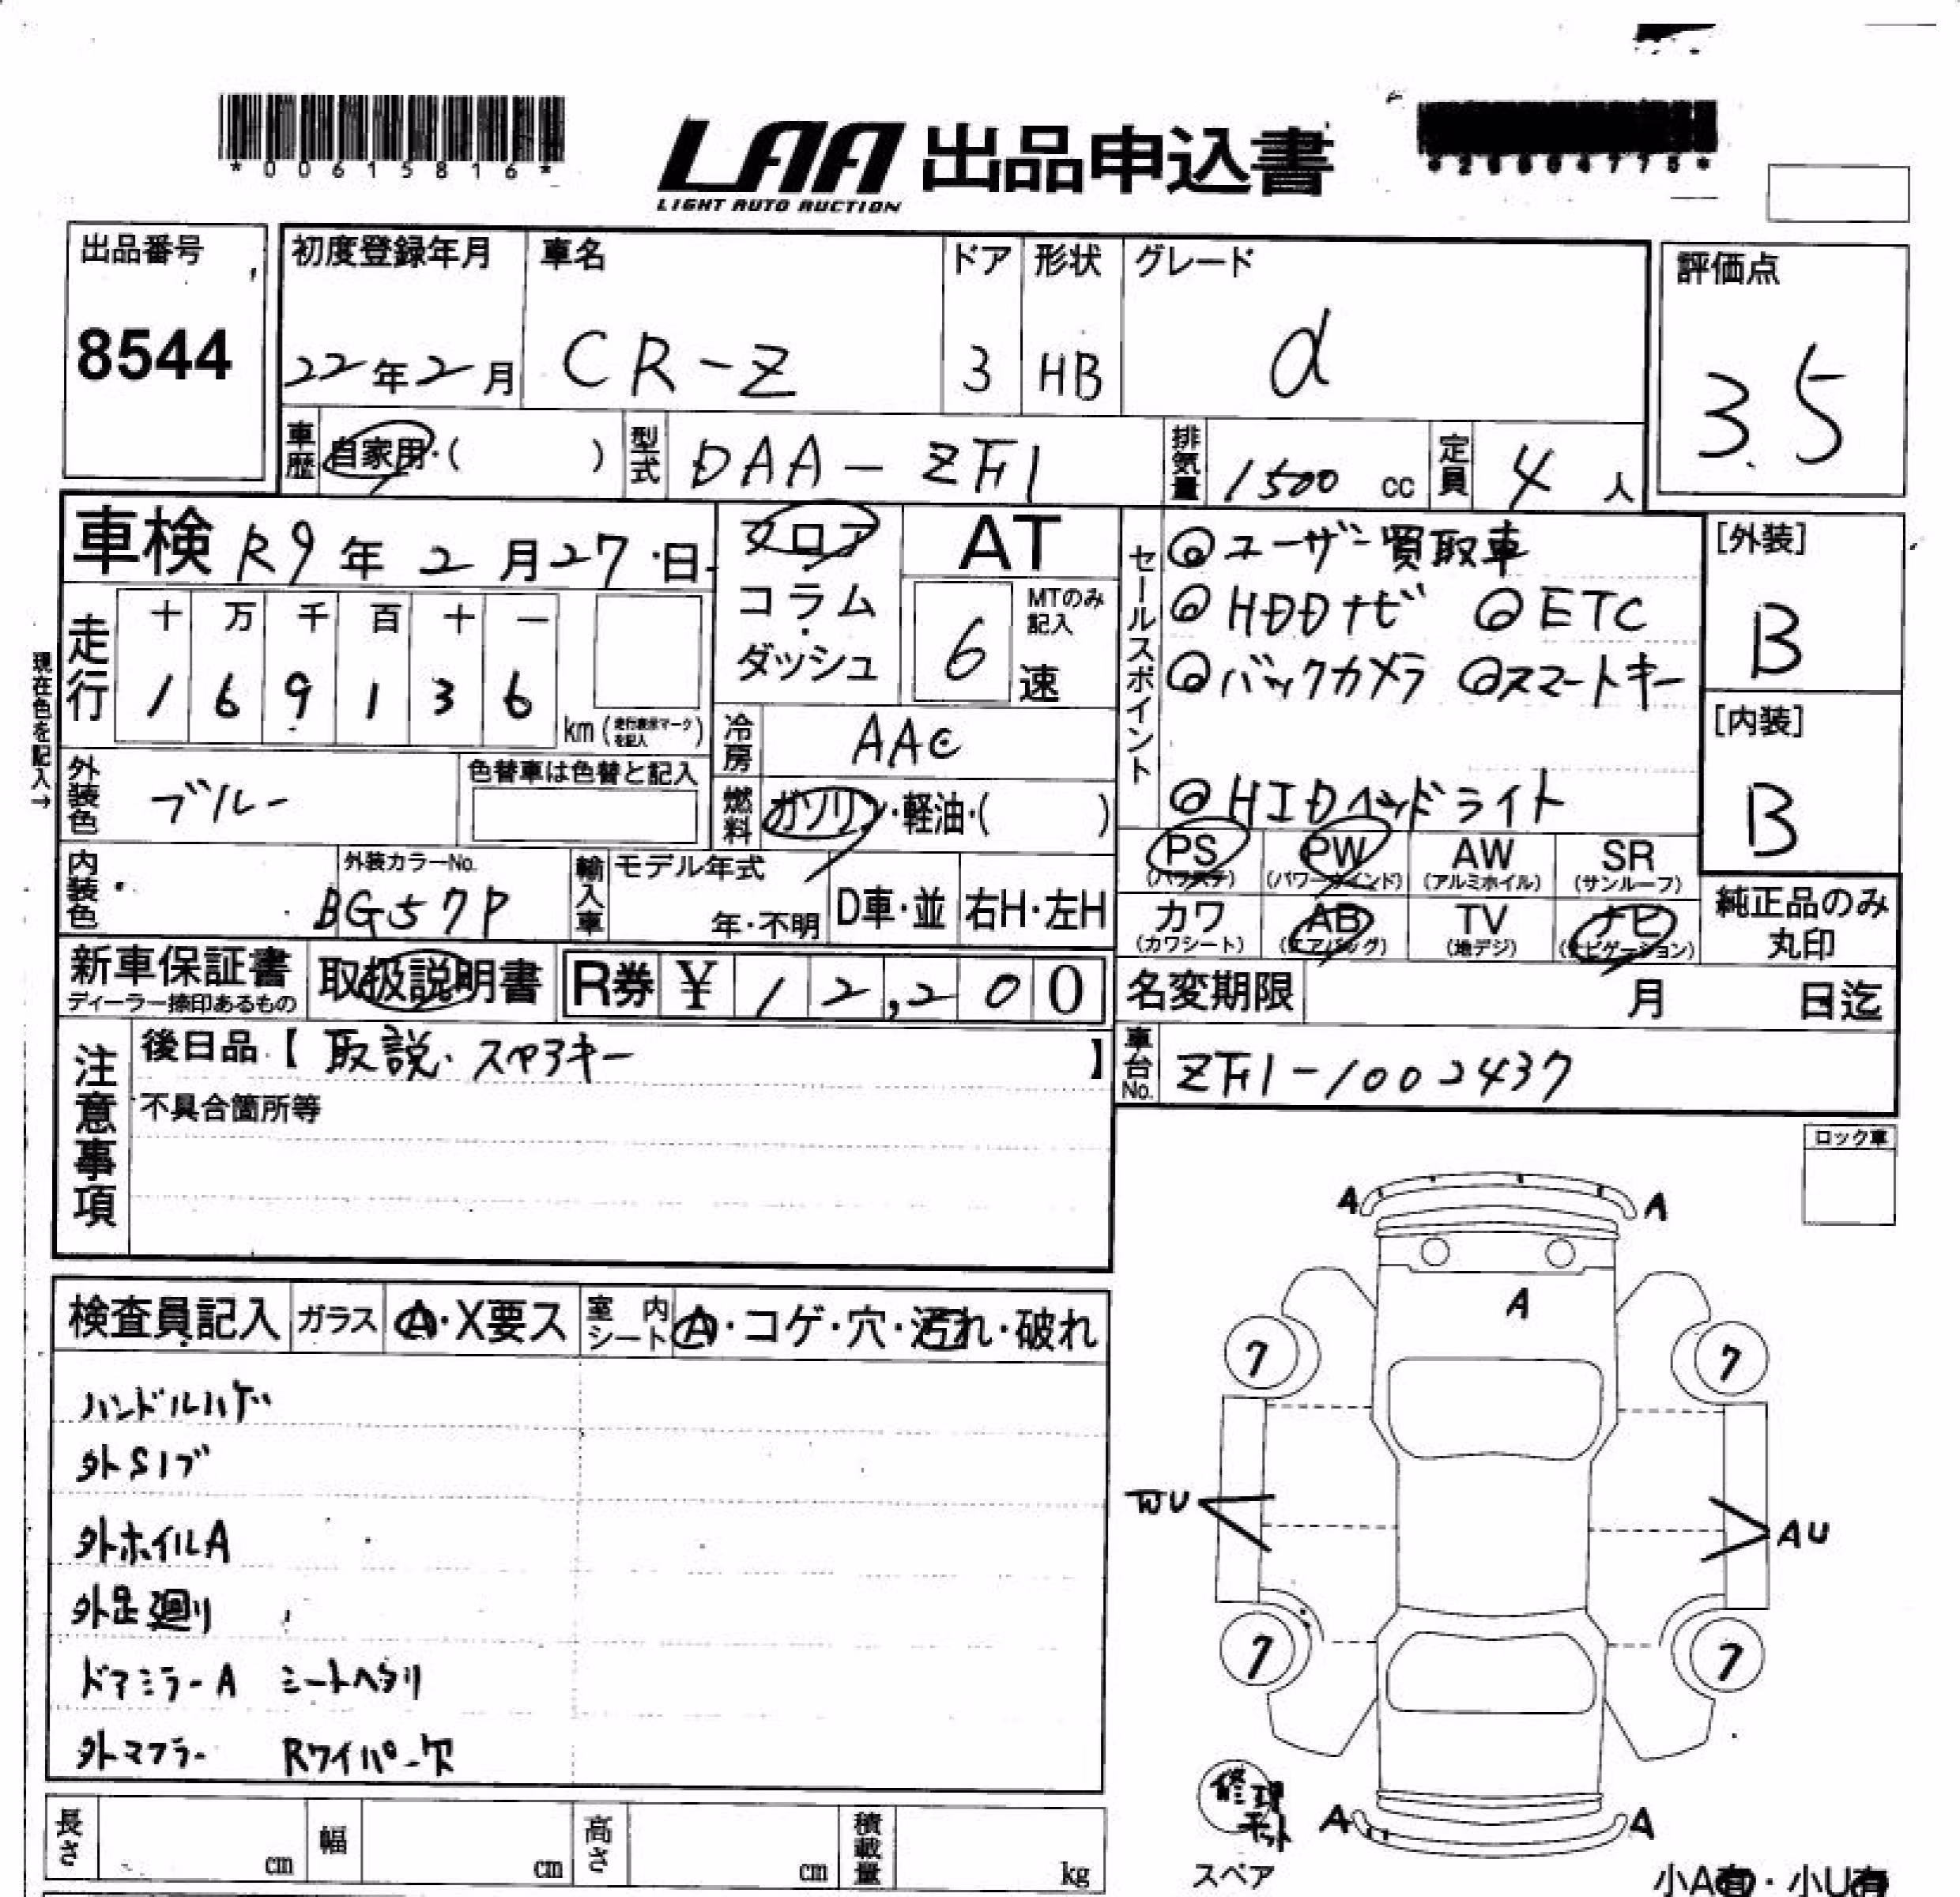 *00615816*
LAA 出品申込書
LIGHT AUTO AUCTION
出品番号
8544
初度登録年月
22年2月
車名
CR-Z
ドア
3
形状
HB
グレード
α
評価点
3.5
車歴
自家用・( )
型式
DAA-ZF1
排気量
1500 cc
定員
4人
車検 R9年2月27日
フロア
コラム
ダッシュ
AT
6
MTのみ記入
速
セールスポイント
◎ユーザー買取車
◎HDDナビ ◎ETC
◎バックカメラ ◎スマートキー
◎HIDヘッドライト
[外装]
B
[内装]
B
現在色を記入→
走行
十 万 千 百 十 一
1 6 9 1 3 6
km (走行表示マークを記入)
冷房
AAC
外装色
ブルー
色替車は色替と記入
燃料
ガソリン・軽油・( )
PS (パワステ)
PW (パワーウインド)
AW (アルミホイル)
SR (サンルーフ)
カワ (カワシート)
AB (エアバッグ)
TV (地デジ)
ナビ (ナビゲーション)
純正品のみ
丸印
内装色
外装カラーNo.
BG57P
輸入車
モデル年式
年・不明
D車・並
右H・左H
新車保証書
ディーラー捺印あるもの
取扱説明書
R券 ¥ 12,200
名変期限
月 日迄
注意事項
後日品【取説・スペアキー】
不具合箇所等
車台No.
ZF1-1002437
ロック車
検査員記入
ガラス
A・X要ス
室内シート
A・コゲ・穴・汚れ・破れ
ハンドルハゲ
外Sイブ
外ホイルA
外足廻り
ドアミラーA シートヘタリ
外マフラー Rワイパー欠
A A
A
7 7
WU AU
7 7
修理キット
スペア
A A
長さ cm
幅 cm
高さ cm
積載量 kg
小A有・小U有